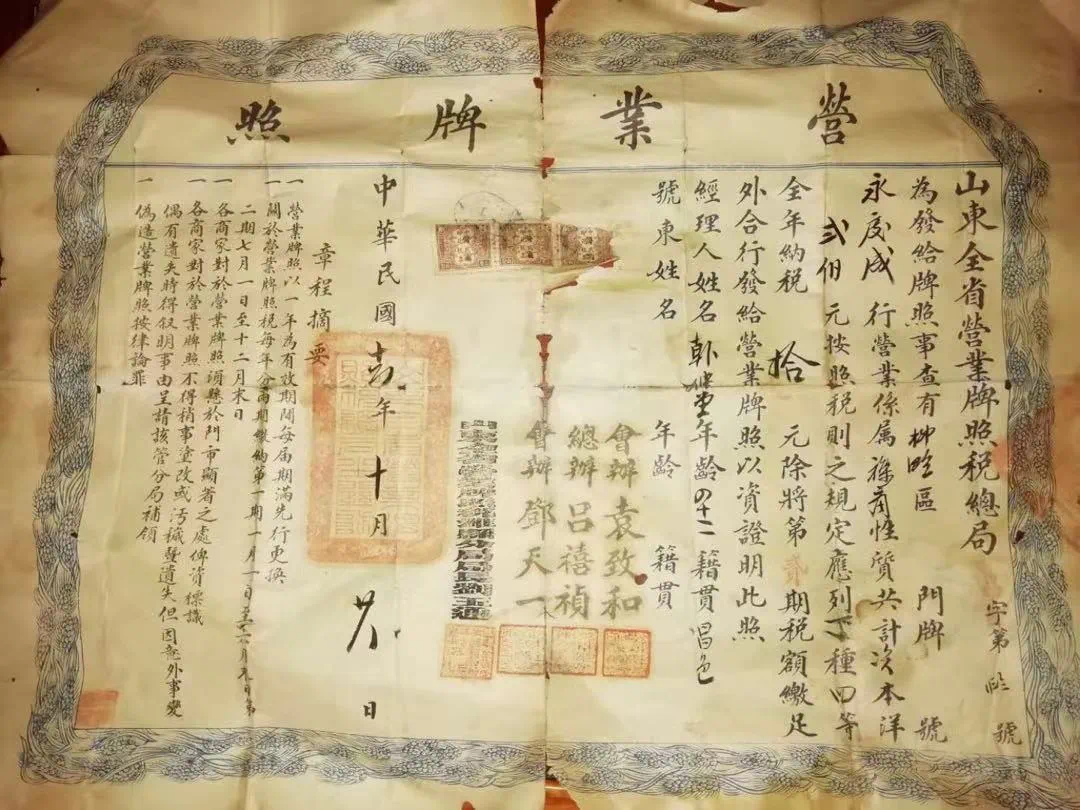 營業牌照
字第 號
山東全省營業牌照税總局
為發給牌照事查有柳 區 門牌 號
永慶成 行營業係属雜貨性質共計資本洋
弍佰 元按照税則之規定應列丁種四等
全年納税 拾 元除將第貳期税額繳足
外合行發給營業牌照以資證明此照
經理人姓名 年齡四十二籍貫昌邑
號東姓名 年齡 籍貫
會辦袁致和
總辦吕禧禎
會辦鄧天一
山東全省營業牌照税濰縣分局局長劉玉
中華民國 年十月 日
章程摘要
一營業牌照以一年為有效期間每届期滿先行更換
一關於營業牌照税每年分兩期繳納第一期一月一日至六月末日第
二期七月一日至十二月末日
一各商家對於營業牌照須懸於門市顯著之處俾資標識
一各商家對於營業牌照不得稍事塗改或汚穢曁遺失但因意外事變
偶有遺失時得叙明事由呈請該管分局補領
一偽造營業牌照按律論罪